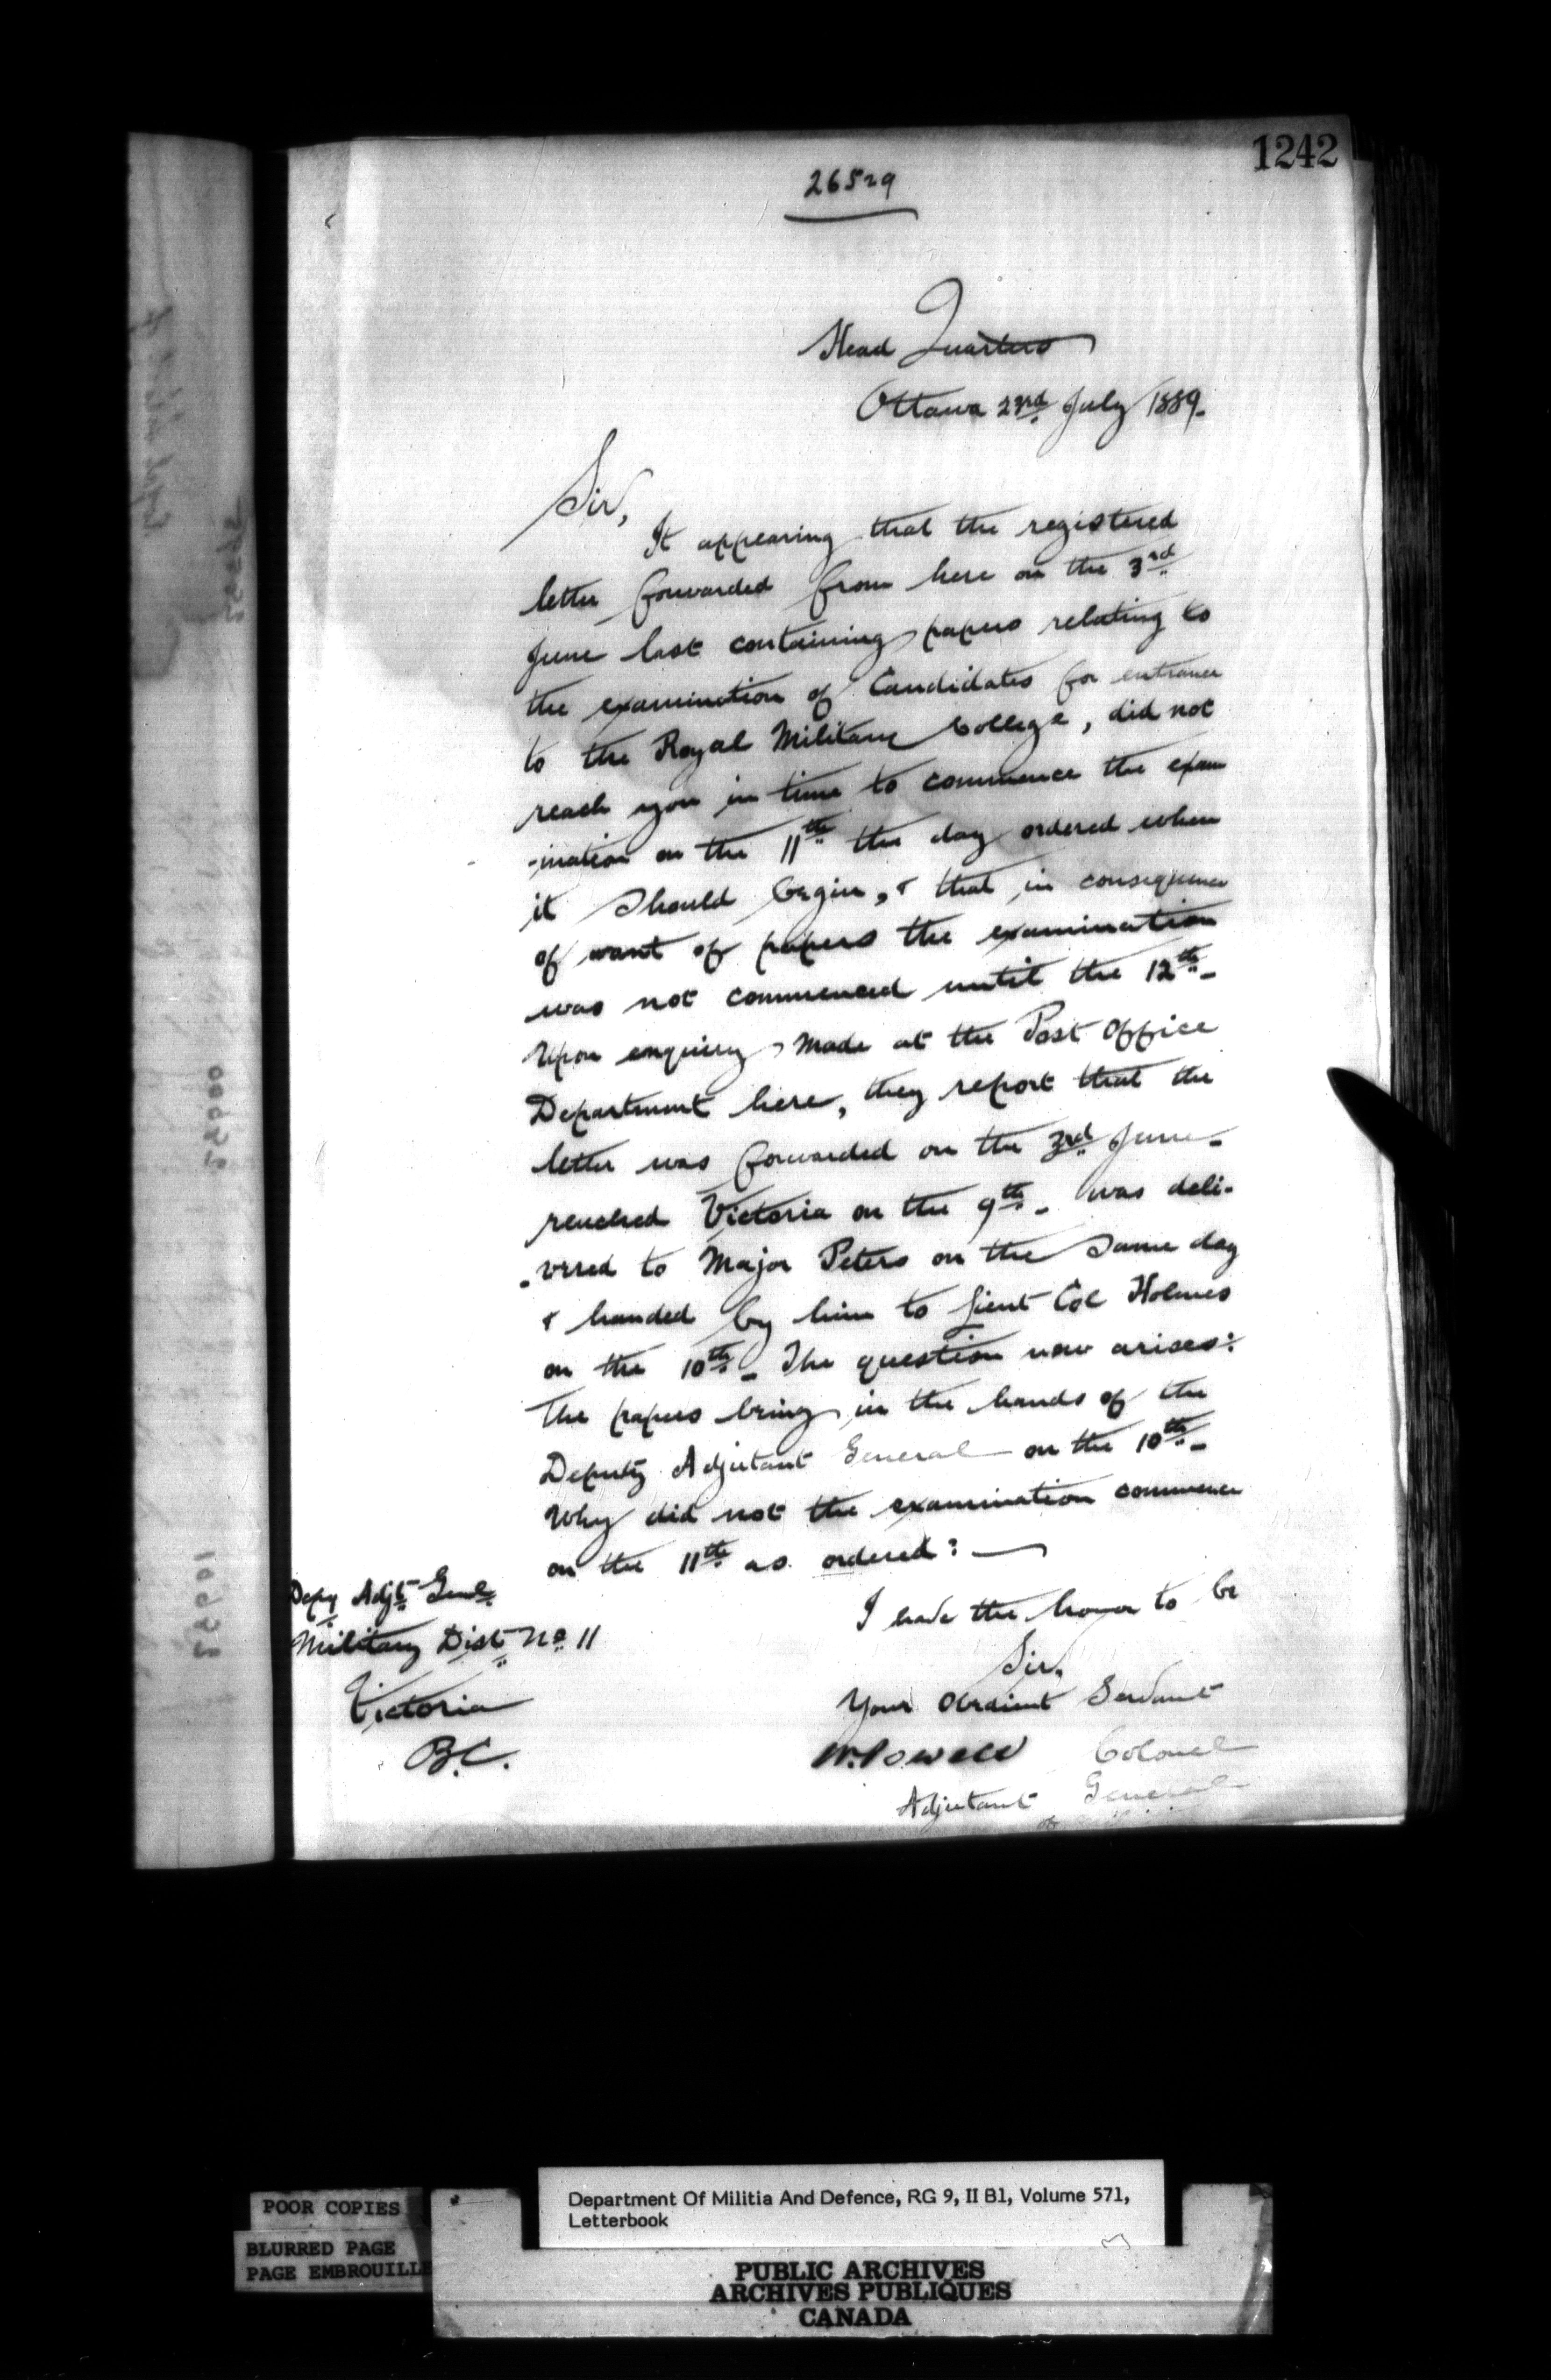 1242
26529
Head Quarters
Ottawa 23rd July 1889.
Sir,
It appearing that the registered
letter forwarded from here on the 3rd
June last containing papers relating to
the examination of Candidates for entrance
to the Royal Military College, did not
reach you in time to commence the exam
-ination on the 11th the day ordered when
it should begin, & that in consequence
of want of papers the examination
was not commenced until the 12th-
Upon enquiry made at the Post Office
Department here, they report that the
letter was forwarded on the 3rd June-
reached Victoria on the 9th- was deli-
-vered to Major Peters on the same day
& handed by him to Lieut Col Holmes
on the 10th- The question now arises:
The papers being in the hands of the
Deputy Adjutant General on the 10th-
Why did not the examination commence
on the 11th as ordered?—
I have the honor to be
Sir,
Your Obedient Servant
W. Powell Colonel
Adjutant General
of
Depy Adjt Genl
Military Dist No 11
Victoria
B.C.
POOR COPIES
BLURRED PAGE
PAGE EMBROUILLE
Department Of Militia And Defence, RG 9, II B1, Volume 571,
Letterbook
PUBLIC ARCHIVES
ARCHIVES PUBLIQUES
CANADA